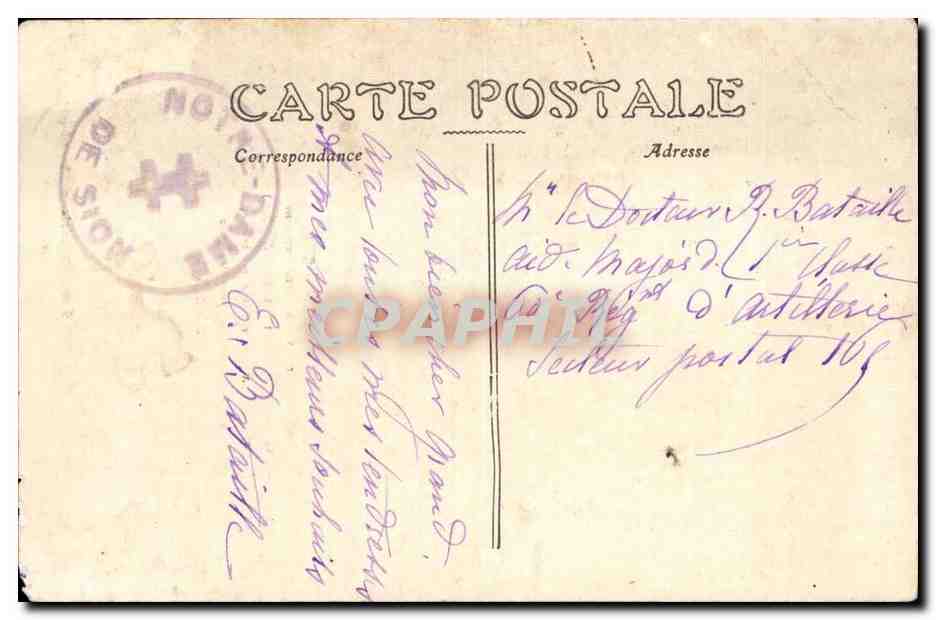 CARTE POSTALE
Correspondance
Adresse
NOTRE-DAME
DE SION
Mon bien cher Grand.
Avec toutes mes tendresses
et mes meilleurs souhaits
E. Bataille
Mr le Docteur R. Bataille
aid. Major d. 1er Classe
Régnt d'artillerie
Secteur postal 105
CPAPHIL